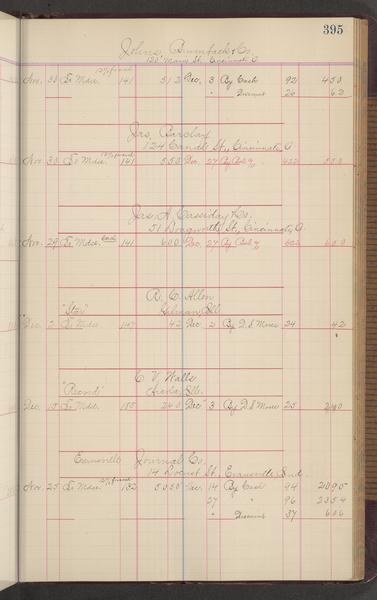 395
Johns, & Co.
Main St. Cincinnati O
Nov. 30 To Mdse. 141 512 Dec. 3 By Cash 92 450
" Discount 20 62
Jas. Barclay
124 Canal St., Cincinnati, O
Nov. 30 To Mdse. 141 550 Dec. 27 By 422 550
Jas. A. Casseday & Co.
51 Longworth St., Cincinnati, O.
Nov. 29 To Mdse. 141 600 Dec. 27 By 600
R. C. Allen
"Star" Gilman, Ill
Dec. 2 To Mdse 42 Dec 2 By D. S. Moses 24 42
C. V. Walls
"Record" Arcola, Ills.
Dec. 15 To Mdse. 185 240 Dec 3 By D. S. Moses 25 240
Evansville Journal Co.
14 Locust St., Evansville, Ind
Nov. 25 To Mdse. 132 5050 Dec. 14 By Cash 94 2095
27 " 96 2354
" Discount 37 606